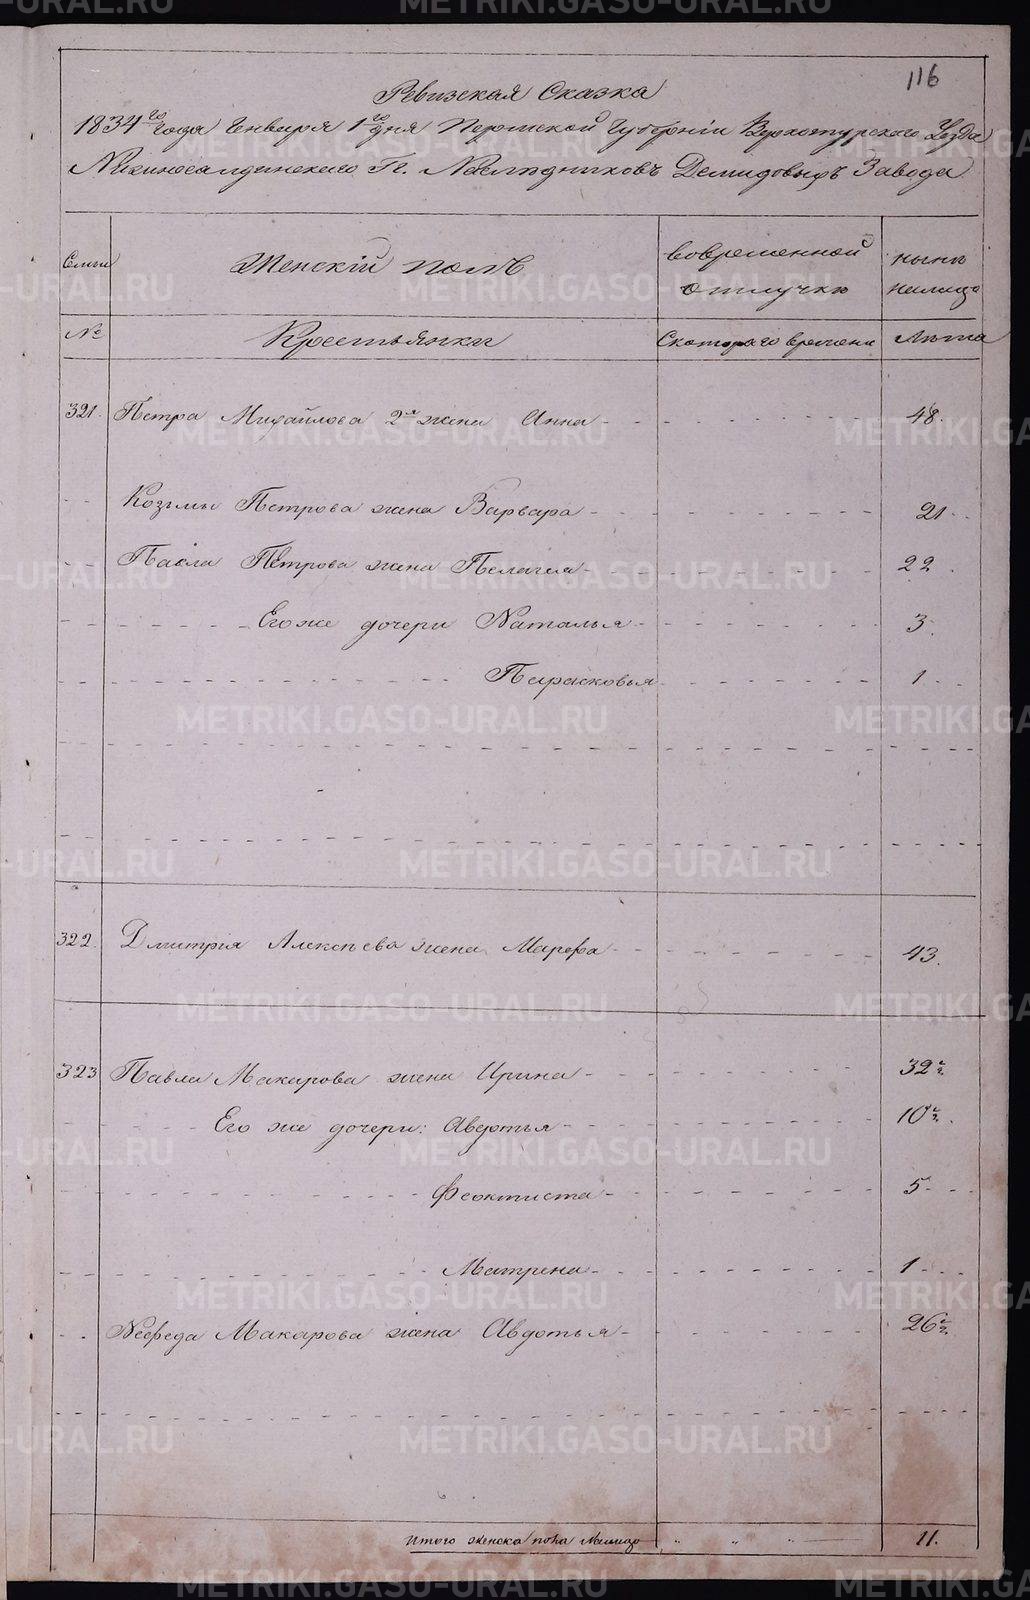 116
Ревизская Сказка
1834го года Генваря 1го дня Пермской Губернiи Верхотурского Уезда
Нижнесалдинского Г. Наследниковъ Демидовыхъ Завода
Семьи Женскiй полъ вовременной отлучке ныне налицо
№ Крестьянки Скоторого времени Лета
321. Петра Михайлова 2я жена Анна 48.
Козьмы Петрова жена Варвара 21
Павла Петрова жена Пелагея 22
Его же дочери Наталья 3
Парасковья 1
322. Дмитрiя Алексеева жена Марефа 43.
323 Павла Макарова жена Ирина 32
Его же дочери: Авдотья 10
Феоктиста 5
Матрена 1
Нефеда Макарова жена Авдотья 26
Итого женска пола Налицо 11.
METRIKI.GASO-URAL.RU